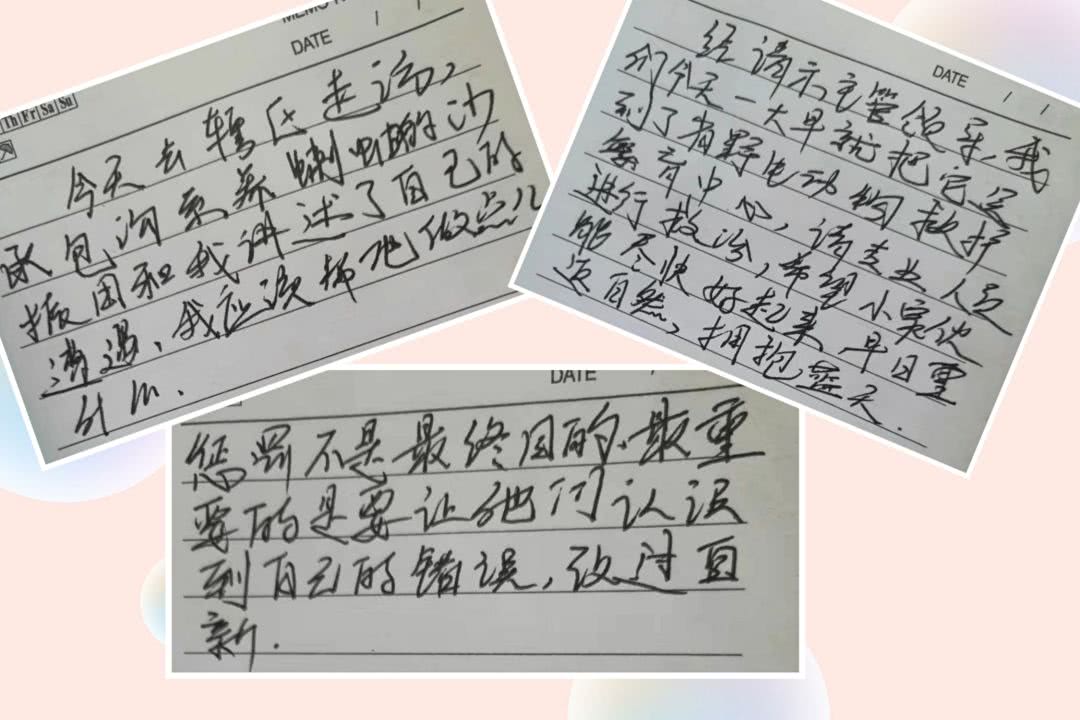 DATE / /
Th Fr Sa Su
今天去辖区走访,
承包沟里养蝲蛄的沙
振国和我讲述了自己的
遭遇,我应该帮他做点儿
什么.
DATE / /
经请示主管领导,我
们今天一大早就把它送
到了省野生动物救护
繁育中心,请专业人员
进行救治,希望小家伙
能尽快好起来早日重
返自然,拥抱蓝天.
DATE /
惩罚不是最终目的.最重
要的是要让他们认识
到自己的错误,改过自
新.